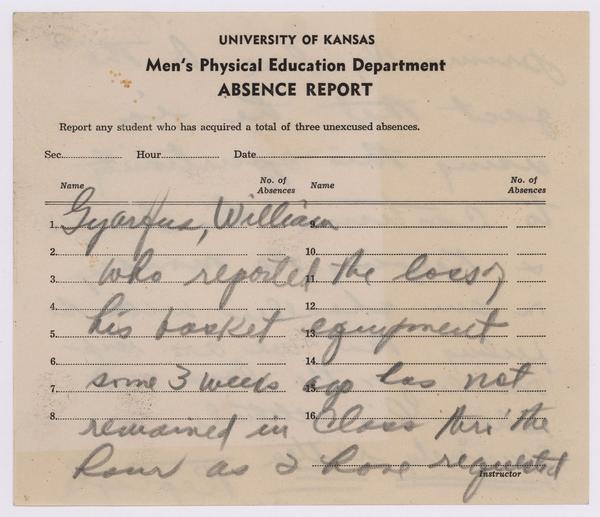 UNIVERSITY OF KANSAS
Men's Physical Education Department
ABSENCE REPORT
Report any student who has acquired a total of three unexcused absences.
Sec. Hour Date
Name No. of Absences Name No. of Absences
1. 9.
Gyarfus, William
2. 10.
3. 11.
who reported the loss of
4. 12.
5. 13.
his basket equipment
6. 14.
7. 15.
some 3 weeks ago has not
8. 16.
remained in Class thru' the
hour as I have requested
Instructor